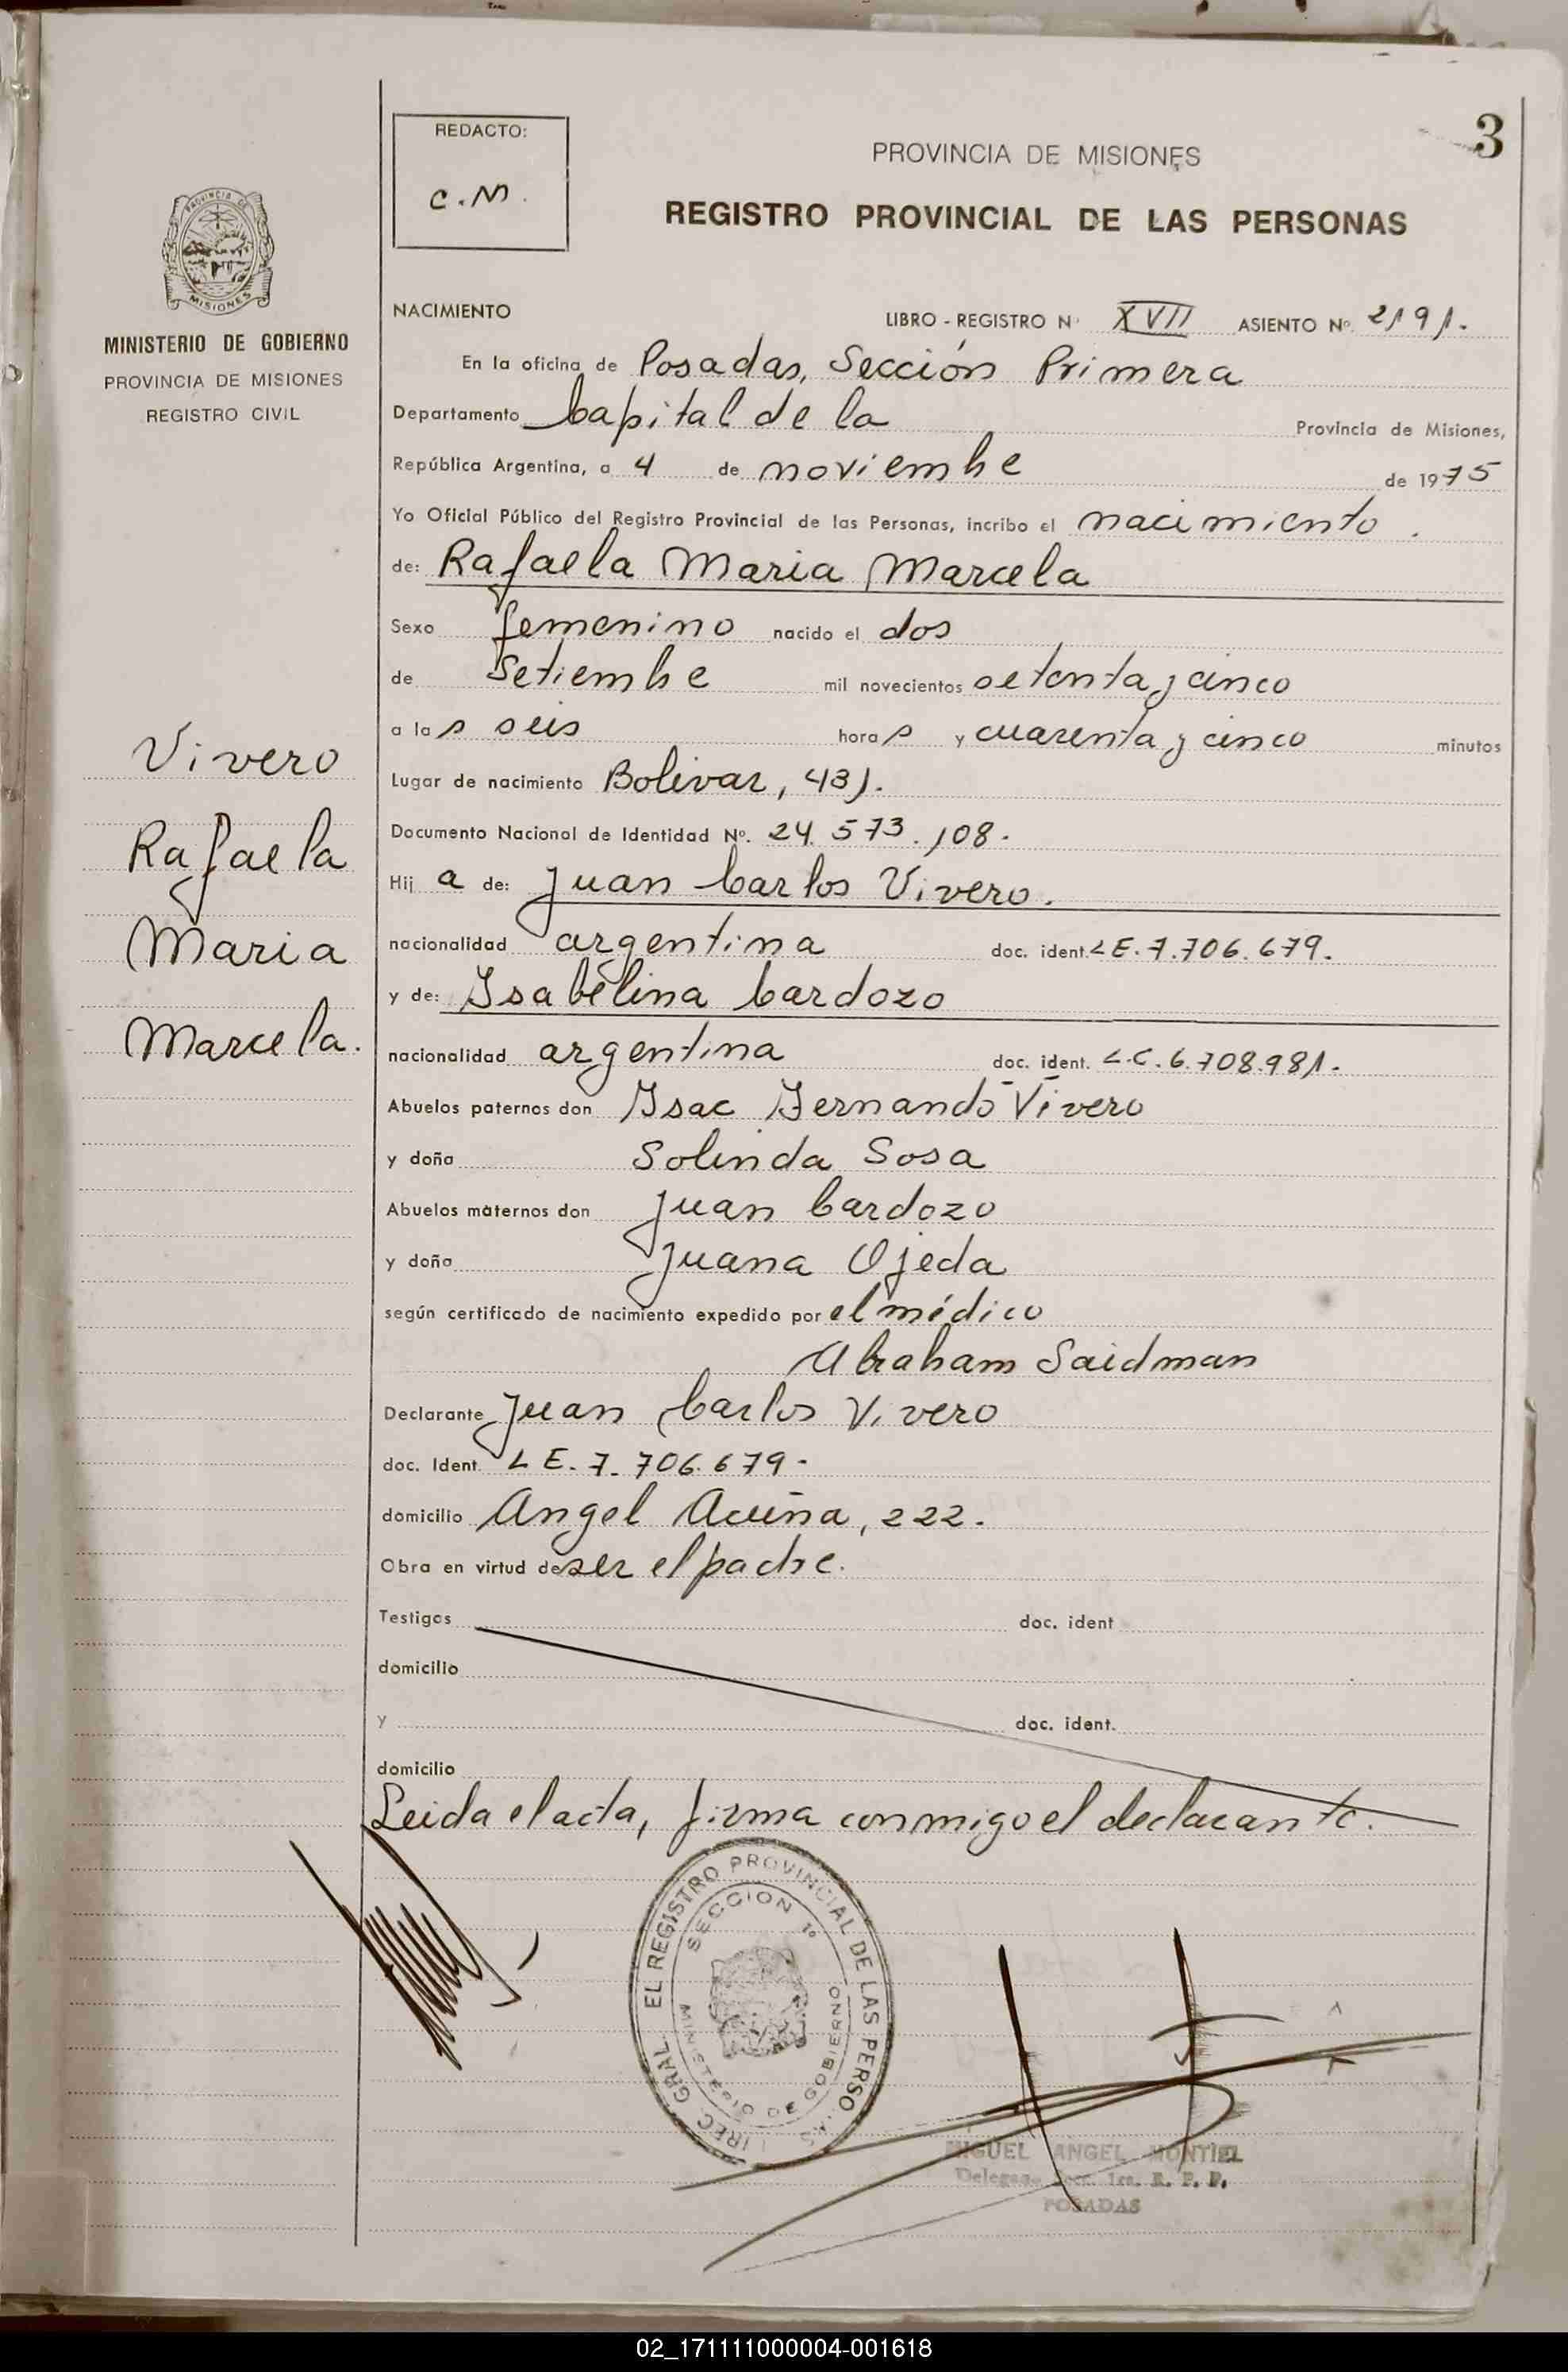 3
REDACTO:
C.M.
PROVINCIA DE MISIONES
REGISTRO PROVINCIAL DE LAS PERSONAS
PROVINCIA DE
MISIONES
MINISTERIO DE GOBIERNO
PROVINCIA DE MISIONES
REGISTRO CIVIL
NACIMIENTO LIBRO - REGISTRO N° XVII ASIENTO Nº. 2191.
En la oficina de Posadas, Sección Primera
Departamento Capital de la Provincia de Misiones,
República Argentina, a 4 de noviembre de 1975
Yo Oficial Público del Registro Provincial de las Personas, incribo el nacimiento.
de: Rafaela Maria Marcela
Sexo femenino nacido el dos
de Setiembre mil novecientos setenta y cinco
a las seis horas y cuarenta y cinco minutos
Lugar de nacimiento Bolivar, 431.
Documento Nacional de Identidad Nº. 24.573.108.
Hija de: Juan Carlos Vivero.
nacionalidad argentina doc. ident. L E. 7.706.679.
y de: Isabelina Cardozo
nacionalidad argentina doc. ident. L.C. 6.708.981.
Abuelos paternos don Isac Fernando Vivero
y doña Solinda Sosa
Abuelos maternos don Juan Cardozo
y doña Juana Ojeda
según certificado de nacimiento expedido por el médico
Abraham Saidman
Declarante Juan Carlos Vivero
doc. Ident. L E. 7. 706.679.
domicilio Angel Acuña, 222.
Obra en virtud de ser el padre.
Testigos doc. ident
domicilio
y doc. ident.
domicilio
Leida el acta, firma conmigo el declarante.
Vivero
Rafaela
Maria
Marcela.
DIREC. GRAL. EL REGISTRO PROVINCIAL DE LAS PERSONAS
SECCION 1º
MINISTERIO DE GOBIERNO
MIGUEL ANGEL MONTIEL
Delegado Secc. 1ra. R. P. P.
POSADAS
02_171111000004-001618